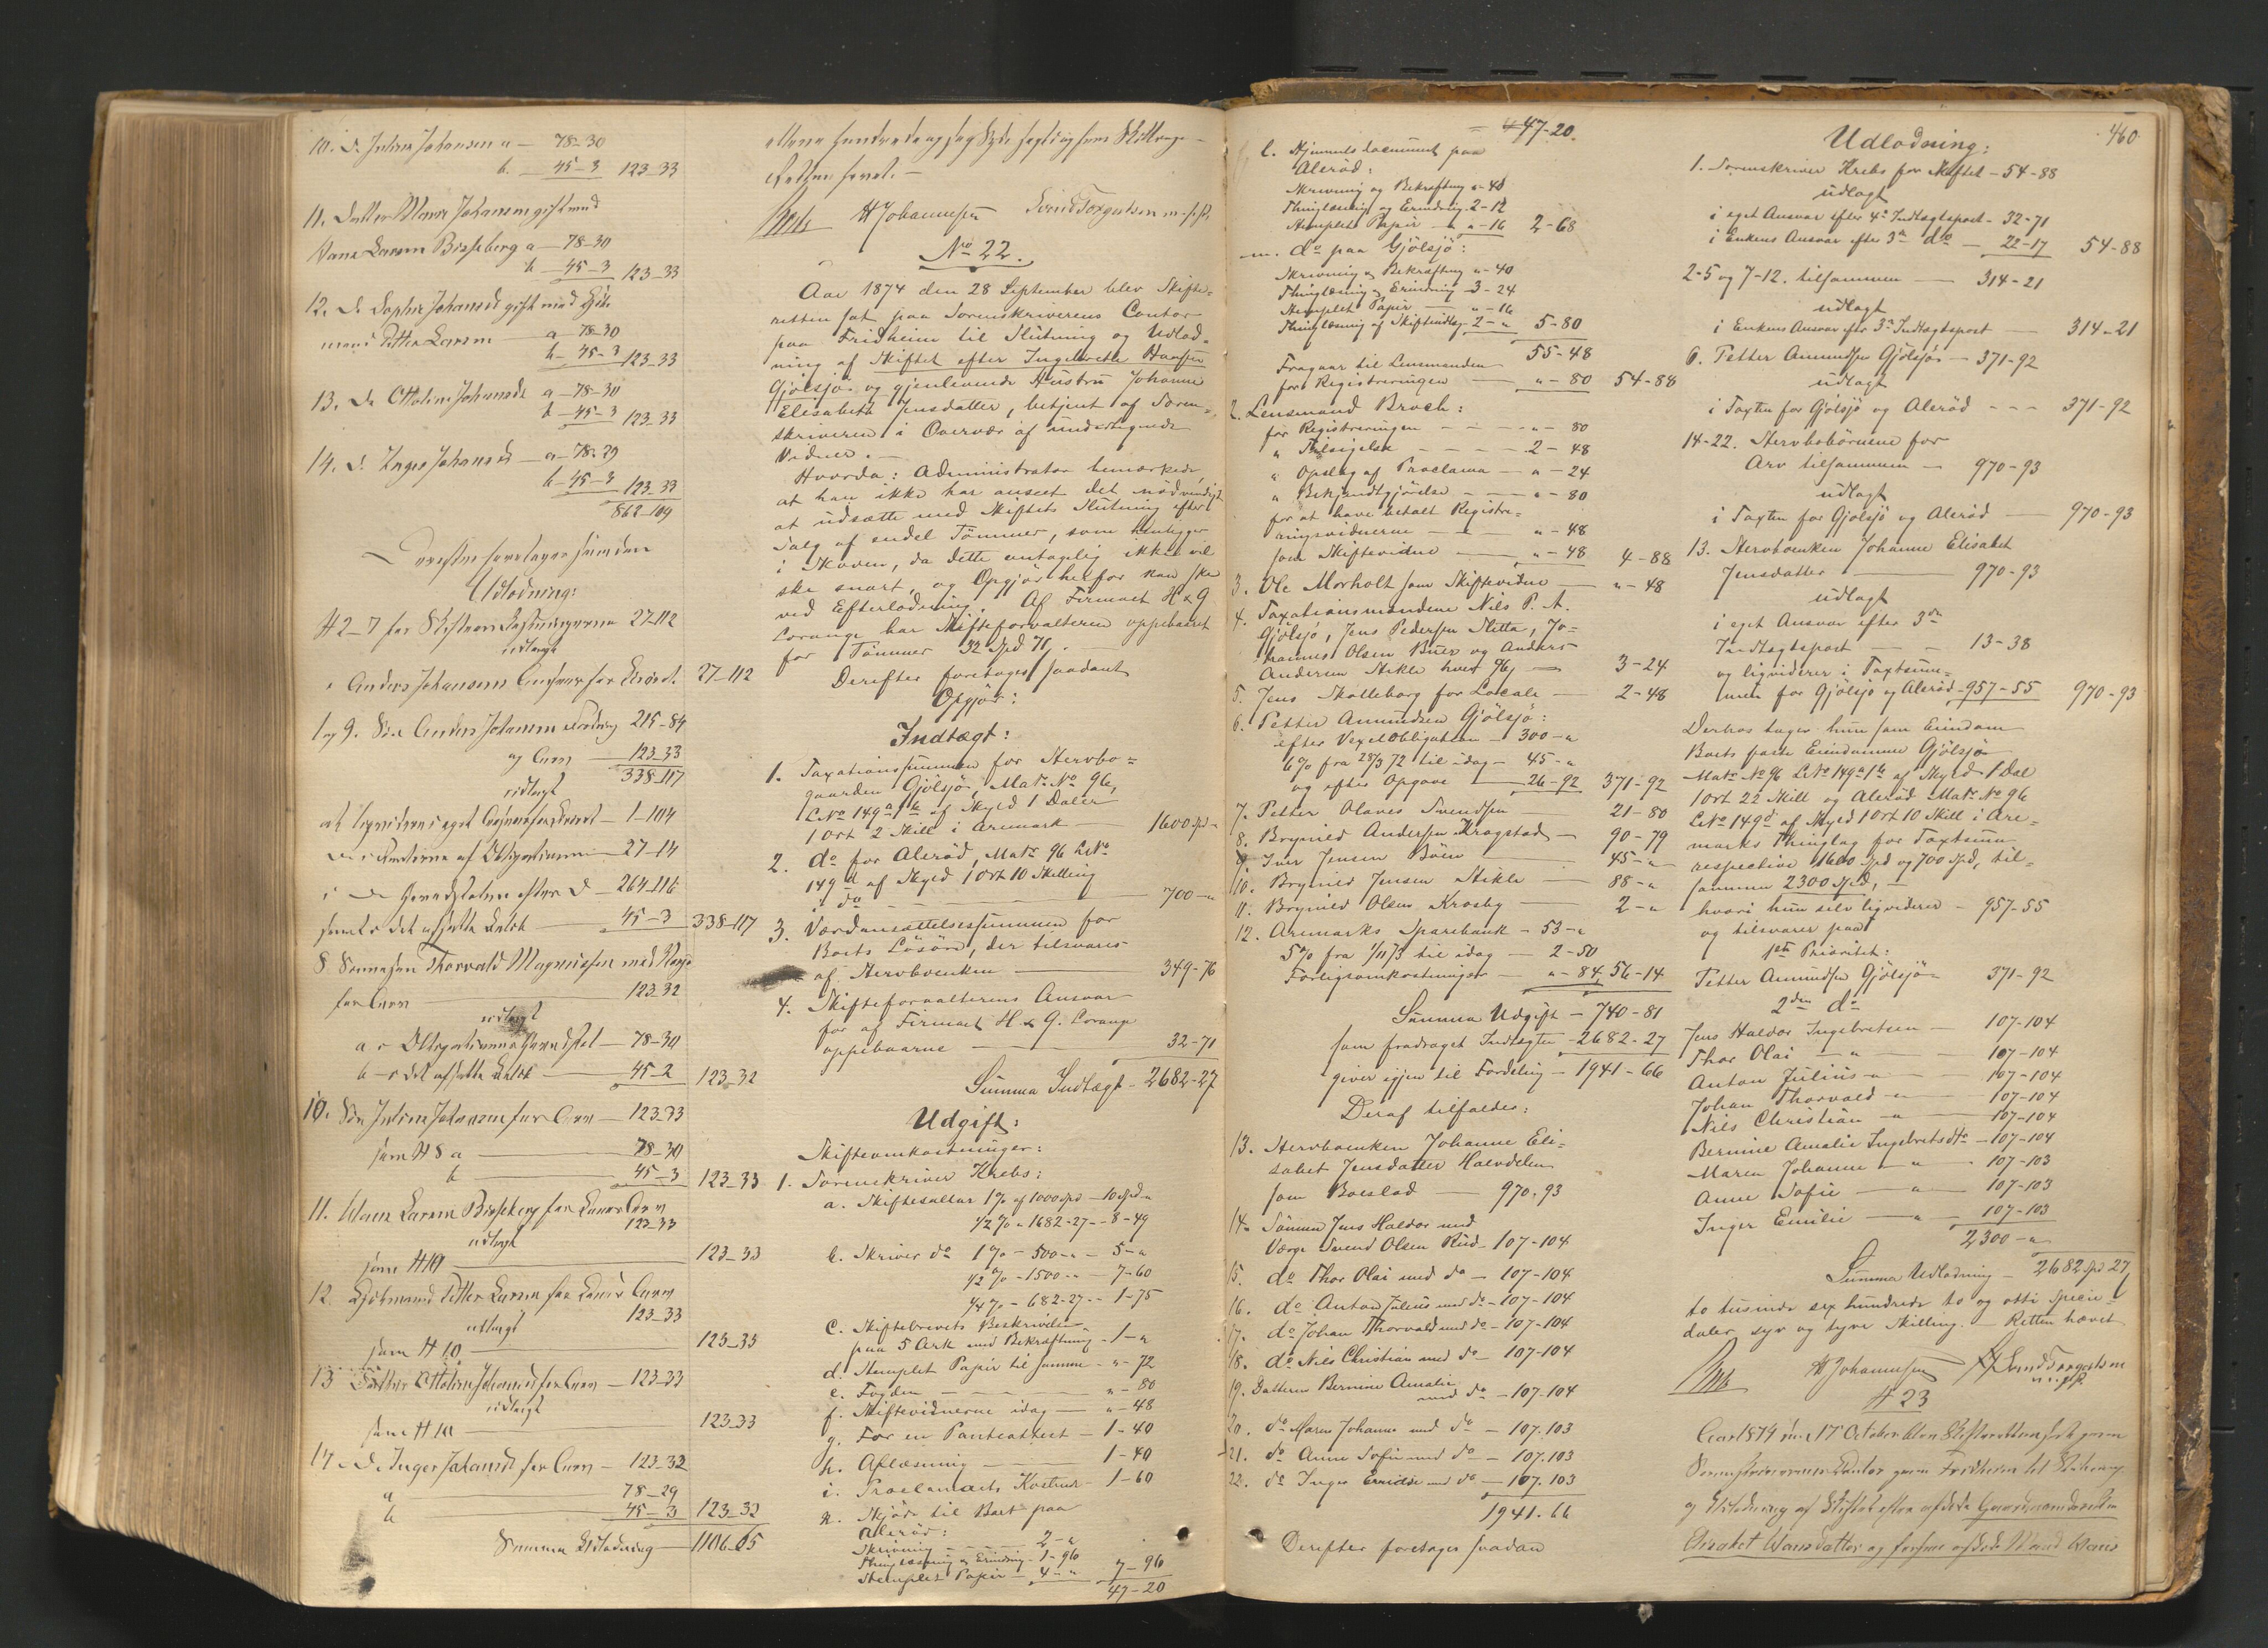 10. d. Julius Johansen a — 78-30
b. — 45-3 123-33
11. Datter Maren Johansen gift med
Hans Larsen Bisseberg a — 78-30
b — 45-3 123-33
12. d. Sophie Johansd. gift med Gjöt-
mand Petter Larsen a — 78-30
b — 45-3 123-33
13. do Ottoline Johansd. a — 78-30
b — 45-3 123-33
14. d. Inger Johansd. — a — 78-29
b — 45-3 123-33
862-109
Derefter foretages saadan
Udlodning:
# 2-7 for Skifteomkostningerne 27-112
udlagt
i Anders Johansens Ansvar for 27-112
1 og 9. Sön Anders Johansen Fordring 215-84
og Arv — 123-33
338-117
udlagt
at liqvidere i eget Ansvar for — 1-104
27-14
264-116
45-3 338-117
8 Sönnesön Thorvald Magnussen med Værge
for Arv 123-32
udlagt
a i Obligationens Hovedstol — 78-30
b — 45-2 123-32
10. Sön Julius Johansen for Arv — 123-33
som # 8 a — 78-30
b — 45-3 123-33
11. Hans Larsen Bisseberg for Konens Arv
123-33
udlagt
som # 10 — 123-33
12. Petter Larsen for Konens Arv
123-33
udlagt
som # 10 — 123-33
13 Datter Ottoline Johansd. for Arv — 123-33
udlagt
som # 10 — 123-33
14. d. Inger Johansd. for Arv — 123-32
a — 78-29
b — 45-3 123-32
Summa Udlodning — 1106-65
Retten hævet. —
Krebs H Johannesen Svend Torgalsen m.f.P.
No 22.
Aar 1874 den 28 September blev Skifte-
retten sat paa Sorenskriverens Contor
paa Fridheim til Slutning og Udlod-
ning af Skiftet efter Ingebreth Hansen
Gjölsjö og gjenlevende Hustru Johanne
Elisabeth Jensdatter, betjent af Soren-
skriveren i Overvær af undertegnede
Vidner. —
Hvorda: Administrator bemærkede,
at han ikke har anseet det nödvendigt
at udsætte med Skiftets Slutning efter
Salg af endel Tömmer, som henligger
i Skoven, da dette antagelig ikke vil
ske snart, og Opgjör herfor kan ske
ved Efterlodning. Af Firmaet H & G
Lorange har Skifteforvalteren oppebaaret
for Tömmer 32 Spd 71. —
Derefter foretages saadant
Opgjör:
Indtægt:
1. Taxationssummen for Stervbo-
gaarden Gjölsjö, Matr No 96,
L No 149 a 1 b af Skyld 1 Daler
1 Ort 2 Skill i Aremark 1600 spd
2. do for Aleröd, Matr 96 L No
149 d af Skyld 1 Ort 10 Skilling
i do — 700-"
3. Værdansættelsessummen for
Boets Lösöre, der tilsvares
af Stervboenken — 349-76
4. Skifteforvalterens Ansvar
for af Firmaet H & G. Lorange
oppebaarne — 32-71
Summa Indtægt - 2682-27
Udgift:
Skifteomkostninger:
1. Sorenskriver Krebs:
a. Skiftesallar 1% af 1000 spd — 10 spd "
1/2 % " 1682-27 - 8-49
b. Skriver do 1% — 500-" — 5-"
1/2 % - 1500-" — 7-60
1/4 % - 682-27 - 1-75
c. Skiftebrevets Beskrivelse
paa 5 Ark med Bekræftning - 1-"
d. Stemplet Papir til samme - "-72
e. Fogden — "-80
f. Skiftevidnerne idag — "-48
g. For en Panteattest — 1-40
h. Aflæsning — 1-40
i. Proclamaets Kostende 1-60
k. Skjöde til Boet paa
Aleröd:
Skrivning — 2-"
Thinglæsning og Erindring - 1-96
Stemplet Papir — 4-" 7-96
47-20
= 47-20.
l. Hjemmelsdocument paa
Aleröd:
Skrivning og Bekræftning "-40
Thinglæsning og Erindring 2-12
Stemplet Papir — "-16 2-68
m. do paa Gjölsjö:
Skrivning og Bekræftning "-40
Thinglæsning og Erindring 3-24
Stemplet Papir — "-16
Thinglæsning af Skifteudlæg 2-" 5-80
55-48
Fragaar til Lensmanden
for Registreringen — "-80 54-88
2. Lensmand Broch:
for Registreringen — "-80
" Tilsigelse — 2-48
" Opslag af Proclama — "-24
" Bekjendtgjörelse — "-80
for at have betalt Registre-
ringsvidnerne — "-48
som Skiftevidne — "-48 4-88
3. Ole Morholt som Skiftevidne — "-48
4. Taxationsmændene Nils P. A.
Gjölsjö, Jens Pedersen Slitta, Jo-
hannes Olsen Buer og Anders
Andersen Stikle hver 96 — 3-24
5. Jens Skolleborg for Locale — 2-48
6. Petter Amundsen Gjölsjö:
efter Vexelobligation — 300-"
6% fra 28/3 72 til idag — 45-"
og efter Opgave — 26-92 371-92
7. Petter Olaves Svendsen — 21-80
8. Brynild Andersen Kragstad — 90-79
9. Iver Jensen Böen — 45-"
10. Brynild Jensen Stikle — 88-"
11. Brynild Olsen Krosby — 2-"
12. Aremarks Sparebank - 53-"
5% fra 1/11 73 til idag — 2-50
Forligsomkostninger — "-84 56-14
Summa Udgift — 740-81
som fradraget Indtægten - 2682-27
giver igjen til Fordeling — 1941-66
Deraf tilfalder:
13. Stervboenken Johanne Eli-
sabet Jensdatter Halvdelen
som Boeslod — 970.93
14. Sönnen Jens Haldor med
Værge Svend Olsen Rud - 107-104
15. do Thor Olai med do — 107-104
16. do Anton Julius med do - 107-104
17. do Johan Thorvald med do - 107-104
18. do Nils Christian med do — 107-104
19. Datteren Bernine Amalie
med do — 107-104
20. do Maren Johanne med do — 107.103
21. do Anne Sofie med do — 107.103
22. do Inger Emilie med do — 107.103
1941.66
Derefter foretages saadan
460
Udlodning:
1. Sorenskriver Krebs for Skiftet — 54-88
udlagt
i eget Ansvar efter 4de Indtægtspost - 32-71
i Enkens Ansvar efter 3die do — 22-17 54-88
2-5 og 7-12. tilsammen — 314-21
udlagt
i Enkens Ansvar efter 3die Indtægtspost — 314-21
6. Petter Amundsen Gjölsjö — 371-92
udlagt
i Taxten for Gjölsjö og Aleröd - - - 371-92
14-22. Stervbobörnene for
Arv tilsammen — 970-93
udlagt
i Taxten for Gjölsjö og Aleröd — 970-93
13. Stervboenken Johanne Elisabet
Jensdatter — 970-93
udlagt
i eget Ansvar efter 3die
Indtægtspost — 13-38
og liqviderer i Taxtsum-
men for Gjölsjö og Aleröd - 957-55 970-93
Derhos tager hun som Eiendom
Boets faste Eiendomme Gjölsjö
Matr No 96 L No 149 a 1 b af Skyld 1 Dal
1 Ort 22 Skill og Aleröd Matr No 96
L No 149 d af Skyld 1 Ort 10 Skill i Are-
marks Thinglag for Taxtsum
respective 1600 Spd og 700 Spd, til-
sammen 2300 Spd, —
hvori hun selv liqviderer — 957-55
og tilsvarer paa
1ste Prioritet:
Petter Amundsen Gjölsjö 371-92
2den do
Jens Haldor Ingebretsen — 107-104
Thor Olai — " — 107-104
Anton Julius — " — 107-104
Johan Thorvald — " — 107-104
Nils Christian — " — 107-104
Bernine Amalie Ingebretsdtr - 107-104
Maren Johanne — " - 107-103
Anne Sofie — " — 107-103
Inger Emilie — " — 107-103
2300-"
Summa Udlodning — 2682 spd 27
to tusinde sex hundrede to og otti Specie-
daler syv og tyve Skilling. — Retten hævet
Krebs H Johannesen Svend Torgalsen
m.f.P.
# 23
Aar 1874 den 17 October blev Skifteretten sat paa
Sorenskriverens Contor paa Fridheim til Slutning
og Udlodning af Skiftet efter afdöde Gaardmandsenke
Elisabet Hansdatter og forhen afdöde Mand Hans